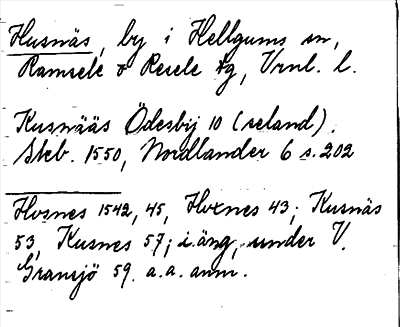 Husnäs, by i Hellgums sn,
Ramsele & Resele tg, Vrnl. l.
Kusnääs Ödesbij 10 (seland).
Skb. 1550, Nordlander 6 s. 202
Hosnes 1542, 45, Hvenes 43; Kusnäs
53, Kusnes 57; i äng, under V.
Gransjö 59. a.a. anm.